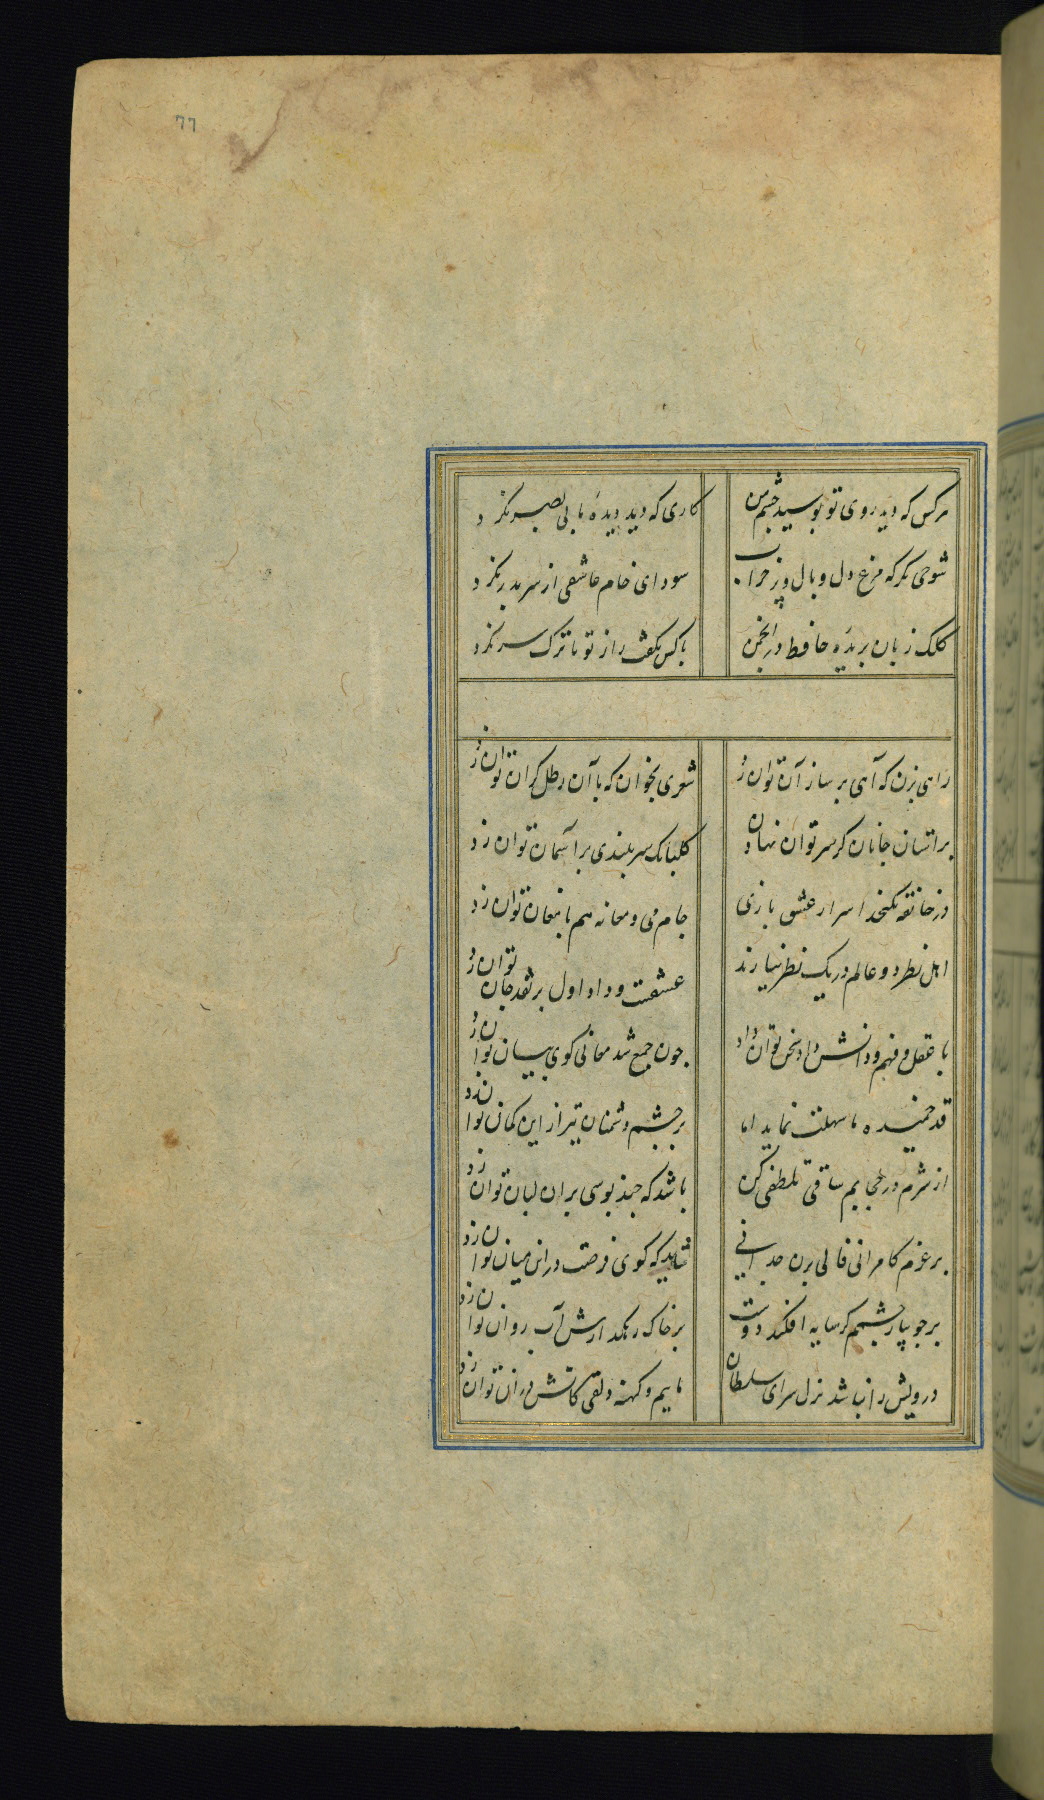 77
هرکس که دید روی تو بوسید چشم من
کاری که دید دیدهٔ ما بی بصر نکرد
شوخی نکر که مرغ دل و بال و پر خراب
سودای خام عاشقی از سر بدر نکرد
کلک زبان بریدهٔ حافظ در انجمن
باکس نکفت راز تو تا ترک سر نکرد
راهی بزن که آهی بر ساز آن توان زد
شعری بخوان که با آن رطل کران توان زد
بر آستان جانان کر سر توان نهادن
کلبانک سربلندی بر آسمان توان زد
در خانقه نکنجد اسرار عشق بازی
جام می و مغانه هم با مغان توان زد
اهل نظر دو عالم در یک نظر نیارند
عشقست و داو اول بر نقد جان توان زد
با عقل و فهم و دانش داد سخن توان داد
چون جمع شد معانی کوی بیان توان زد
قد خمیده ما سهلت نماید اما
بر چشم دشمنان تیر از این کمان توان زد
از شرم در حجابیم ساقی تلطفی کن
باشد که چند بوسی بر آن لبان توان زد
بر عزم کامرانی فالی بزن
شاید که کوی فرصت در این میان توان زد
بر جویبار چشمم کر سایه افکند دوست
بر خاک رهکذارش آب روان توان زد
درویش را نباشد نزل سرای سلطان
ماییم و کهنه دلقی کاتش در آن توان زد